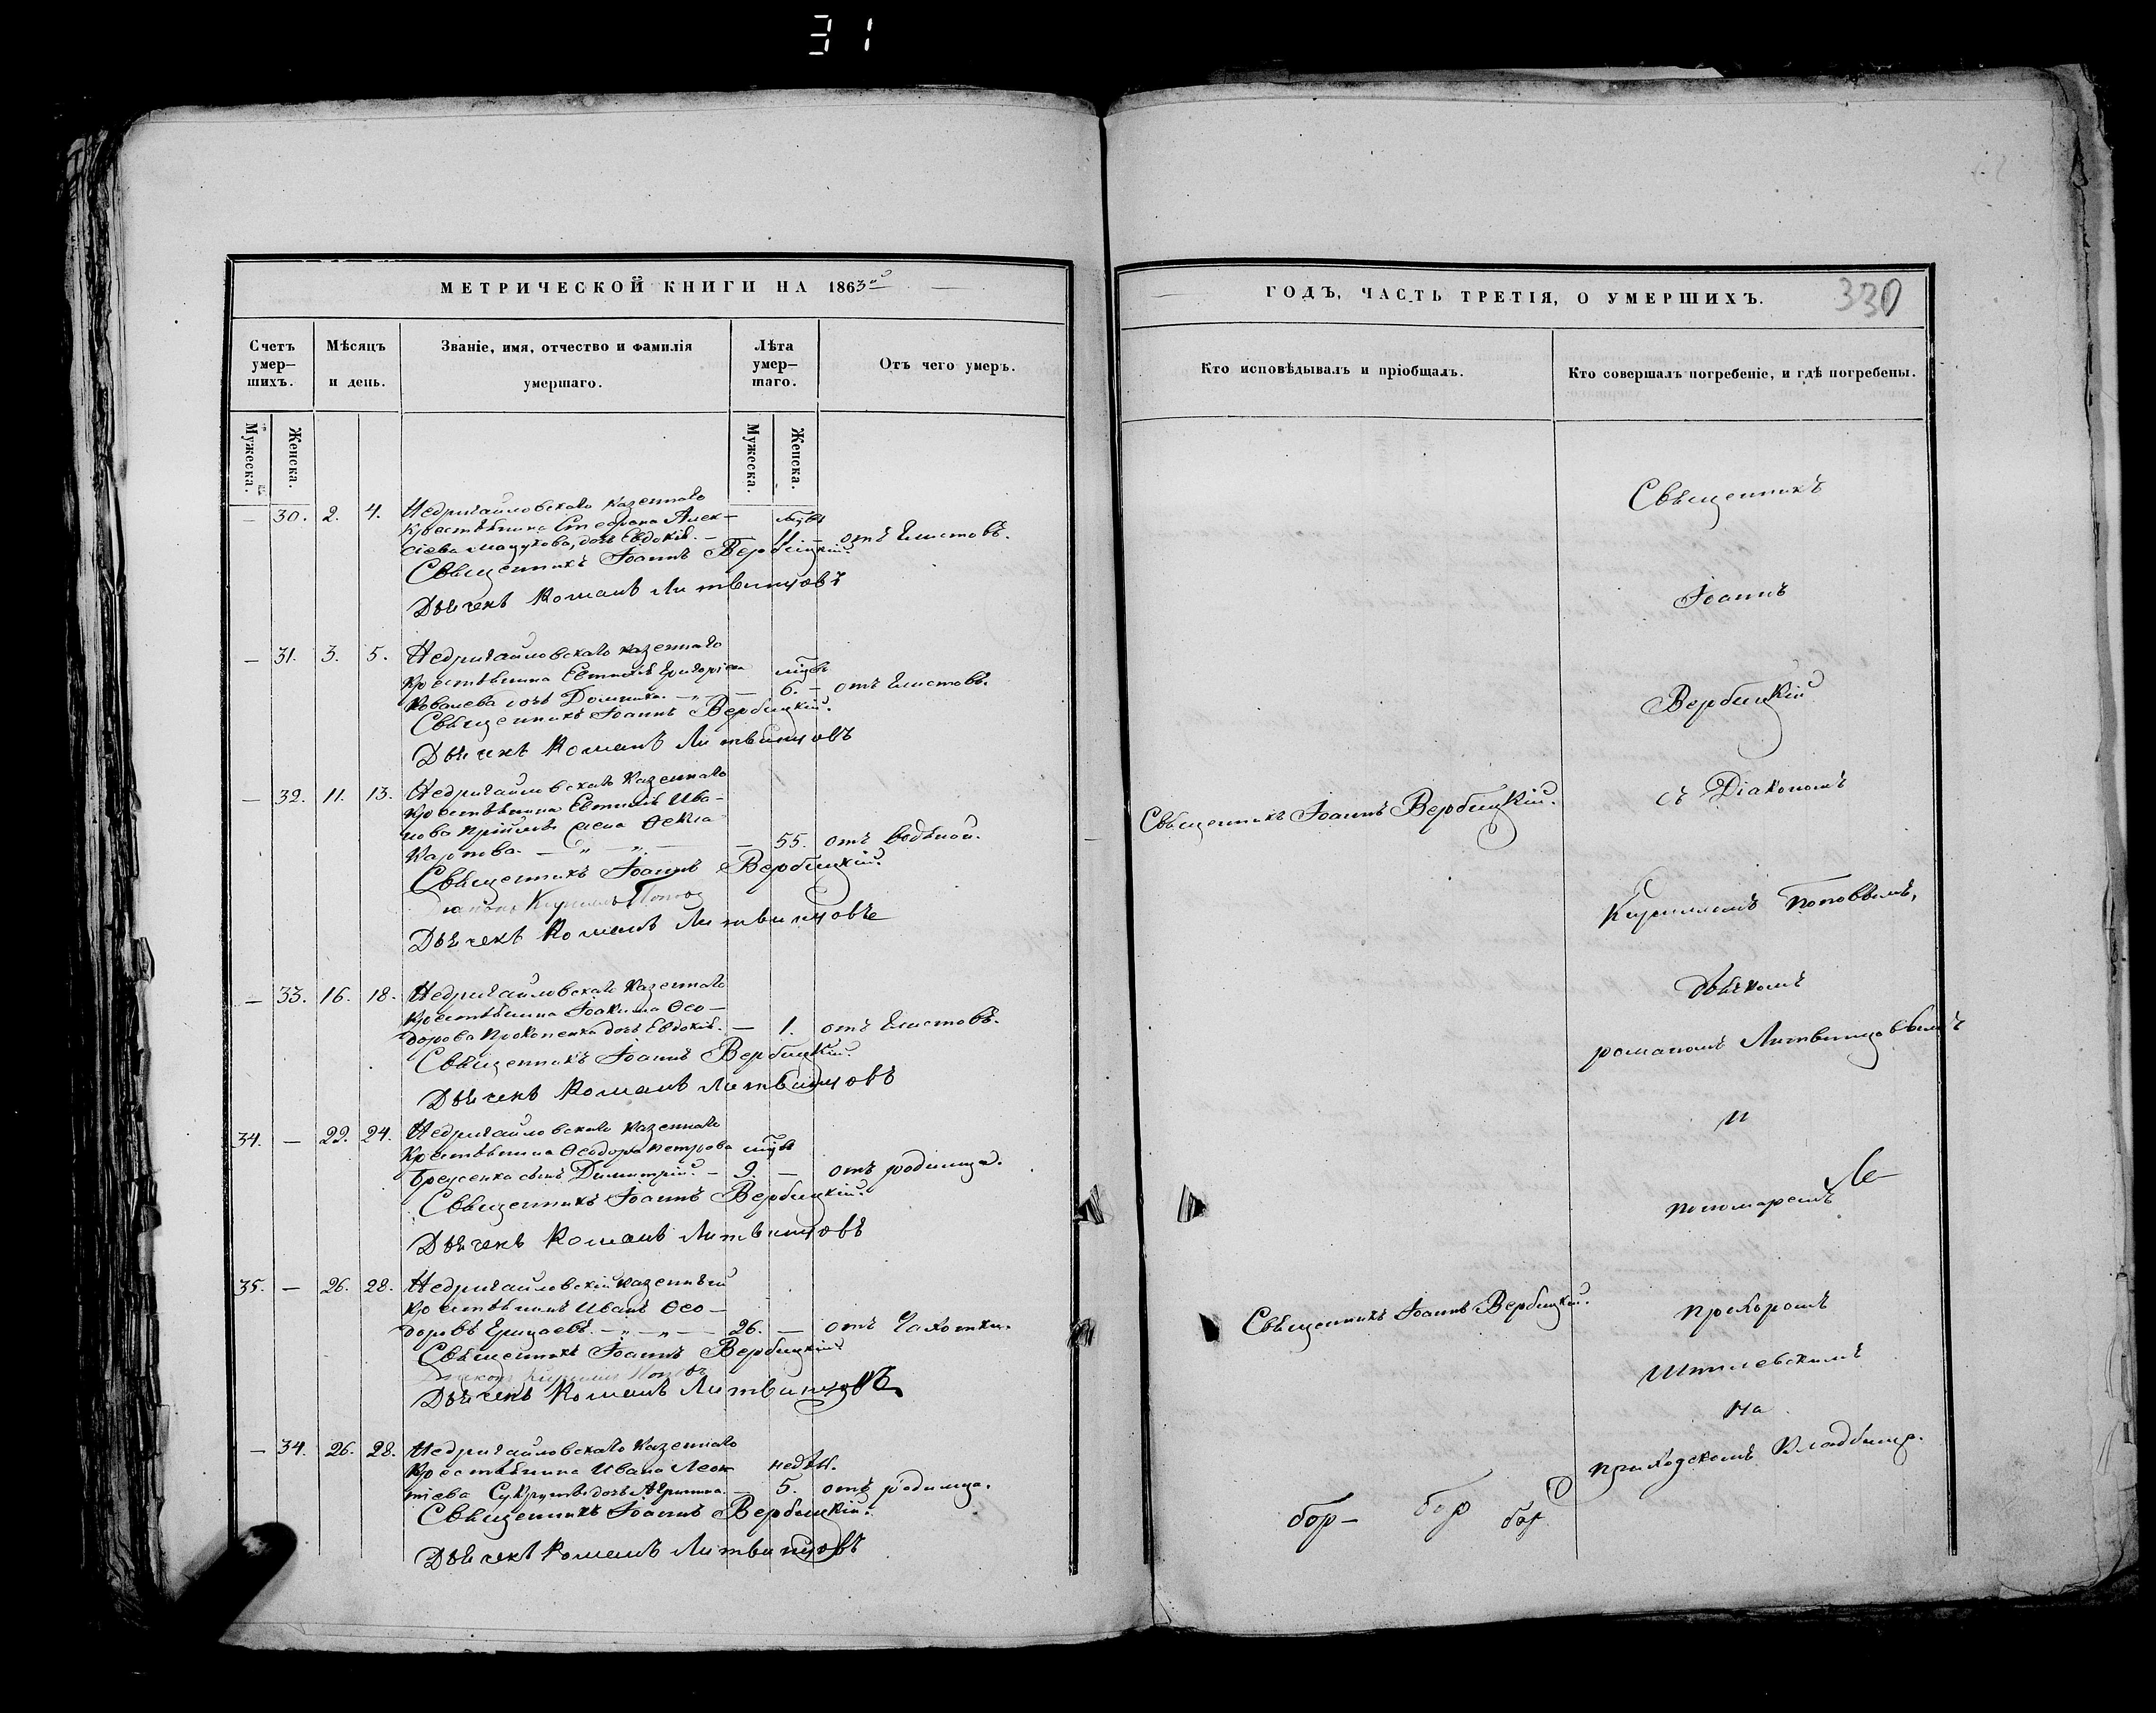 31
МЕТРИЧЕСКОЙ КНИГИ НА 1863й
Счетъ умер-шихъ.
Мѣсяцъ и день.
Званіе, имя, отчество и фамилія умершаго.
Лѣта умер-шаго.
Отъ чего умеръ.
Мужеска.
Женска.
Мужеска.
Женска.
Недригайловскаго казеннаго
— 30. 2. 4. крестьянина Стефана Алек- мцвъ
сіева дочь Евдокія. — 11 — отъ глистовъ.
Священникъ Іоаннъ Вербицкій.
Дьячекъ Романъ Литвинцовъ
— 31. 3. 5. Недригайловскаго казеннаго
крестьянина Евтихія Григоріева мцвъ
Ковалева дочь Домника. — „ — — 6. — отъ глистовъ.
Священникъ Іоаннъ Вербицкій.
Дьячекъ Романъ Литвинцовъ
— 32. 11. 13. Недригайловскаго казеннаго
крестьянина Евтихія Ива-
нова жена Ѳекла
Карпова. — „ — „ — — 55. отъ водяной.
Священникъ Іоаннъ Вербицкій.
Діаконъ Кириллъ Поповъ
Дьячекъ Романъ Литвинцовъ
— 33. 16. 18. Недригайловскаго казеннаго
крестьянина Іоакима Ѳео-
дорова Прокопенка дочь Евдокія. — 1. отъ глистовъ.
Священникъ Іоаннъ Вербицкій.
Дьячекъ Романъ Литвинцовъ
34. — 22. 24. Недригайловскаго казеннаго
крестьянина Ѳеодора Петрова мцвъ
сынъ Димитрій. — 9. — отъ родимца.
Священникъ Іоаннъ Вербицкій.
Дьячекъ Романъ Литвинцовъ
35. — 26. 28. Недригайловскій казенный
крестьянинъ Иванъ Ѳео-
доровъ Грицаевъ. — „ — „ — 26. — отъ чахотки.
Священникъ Іоаннъ Вербицкій
Діаконъ Кириллъ Поповъ
Дьячекъ Романъ Литвинцовъ
— 34. 26. 28. Недригайловскаго казеннаго
крестьянина Ивана Леон- недѣл.
тіева дочь — 5. отъ родимца.
Священникъ Іоаннъ Вербицкій.
Дьячекъ Романъ Литвинцовъ
ГОДЪ, ЧАСТЬ ТРЕТІЯ, О УМЕРШИХЪ.
330
Кто исповѣдывалъ и пріобщалъ.
Кто совершалъ погребеніе, и гдѣ погребены.
Священникъ Іоаннъ Вербицкій.
Священникъ Іоаннъ Вербицкій.
бор- бор бор
Священникъ
Іоаннъ
Вербицкій
съ Діакономъ
Кирилломъ Поповымъ,
дьячкомъ
романомъ Литвинцовымъ
и
пономаремъ
Прохоромъ
на
приходскомъ кладбищѣ.